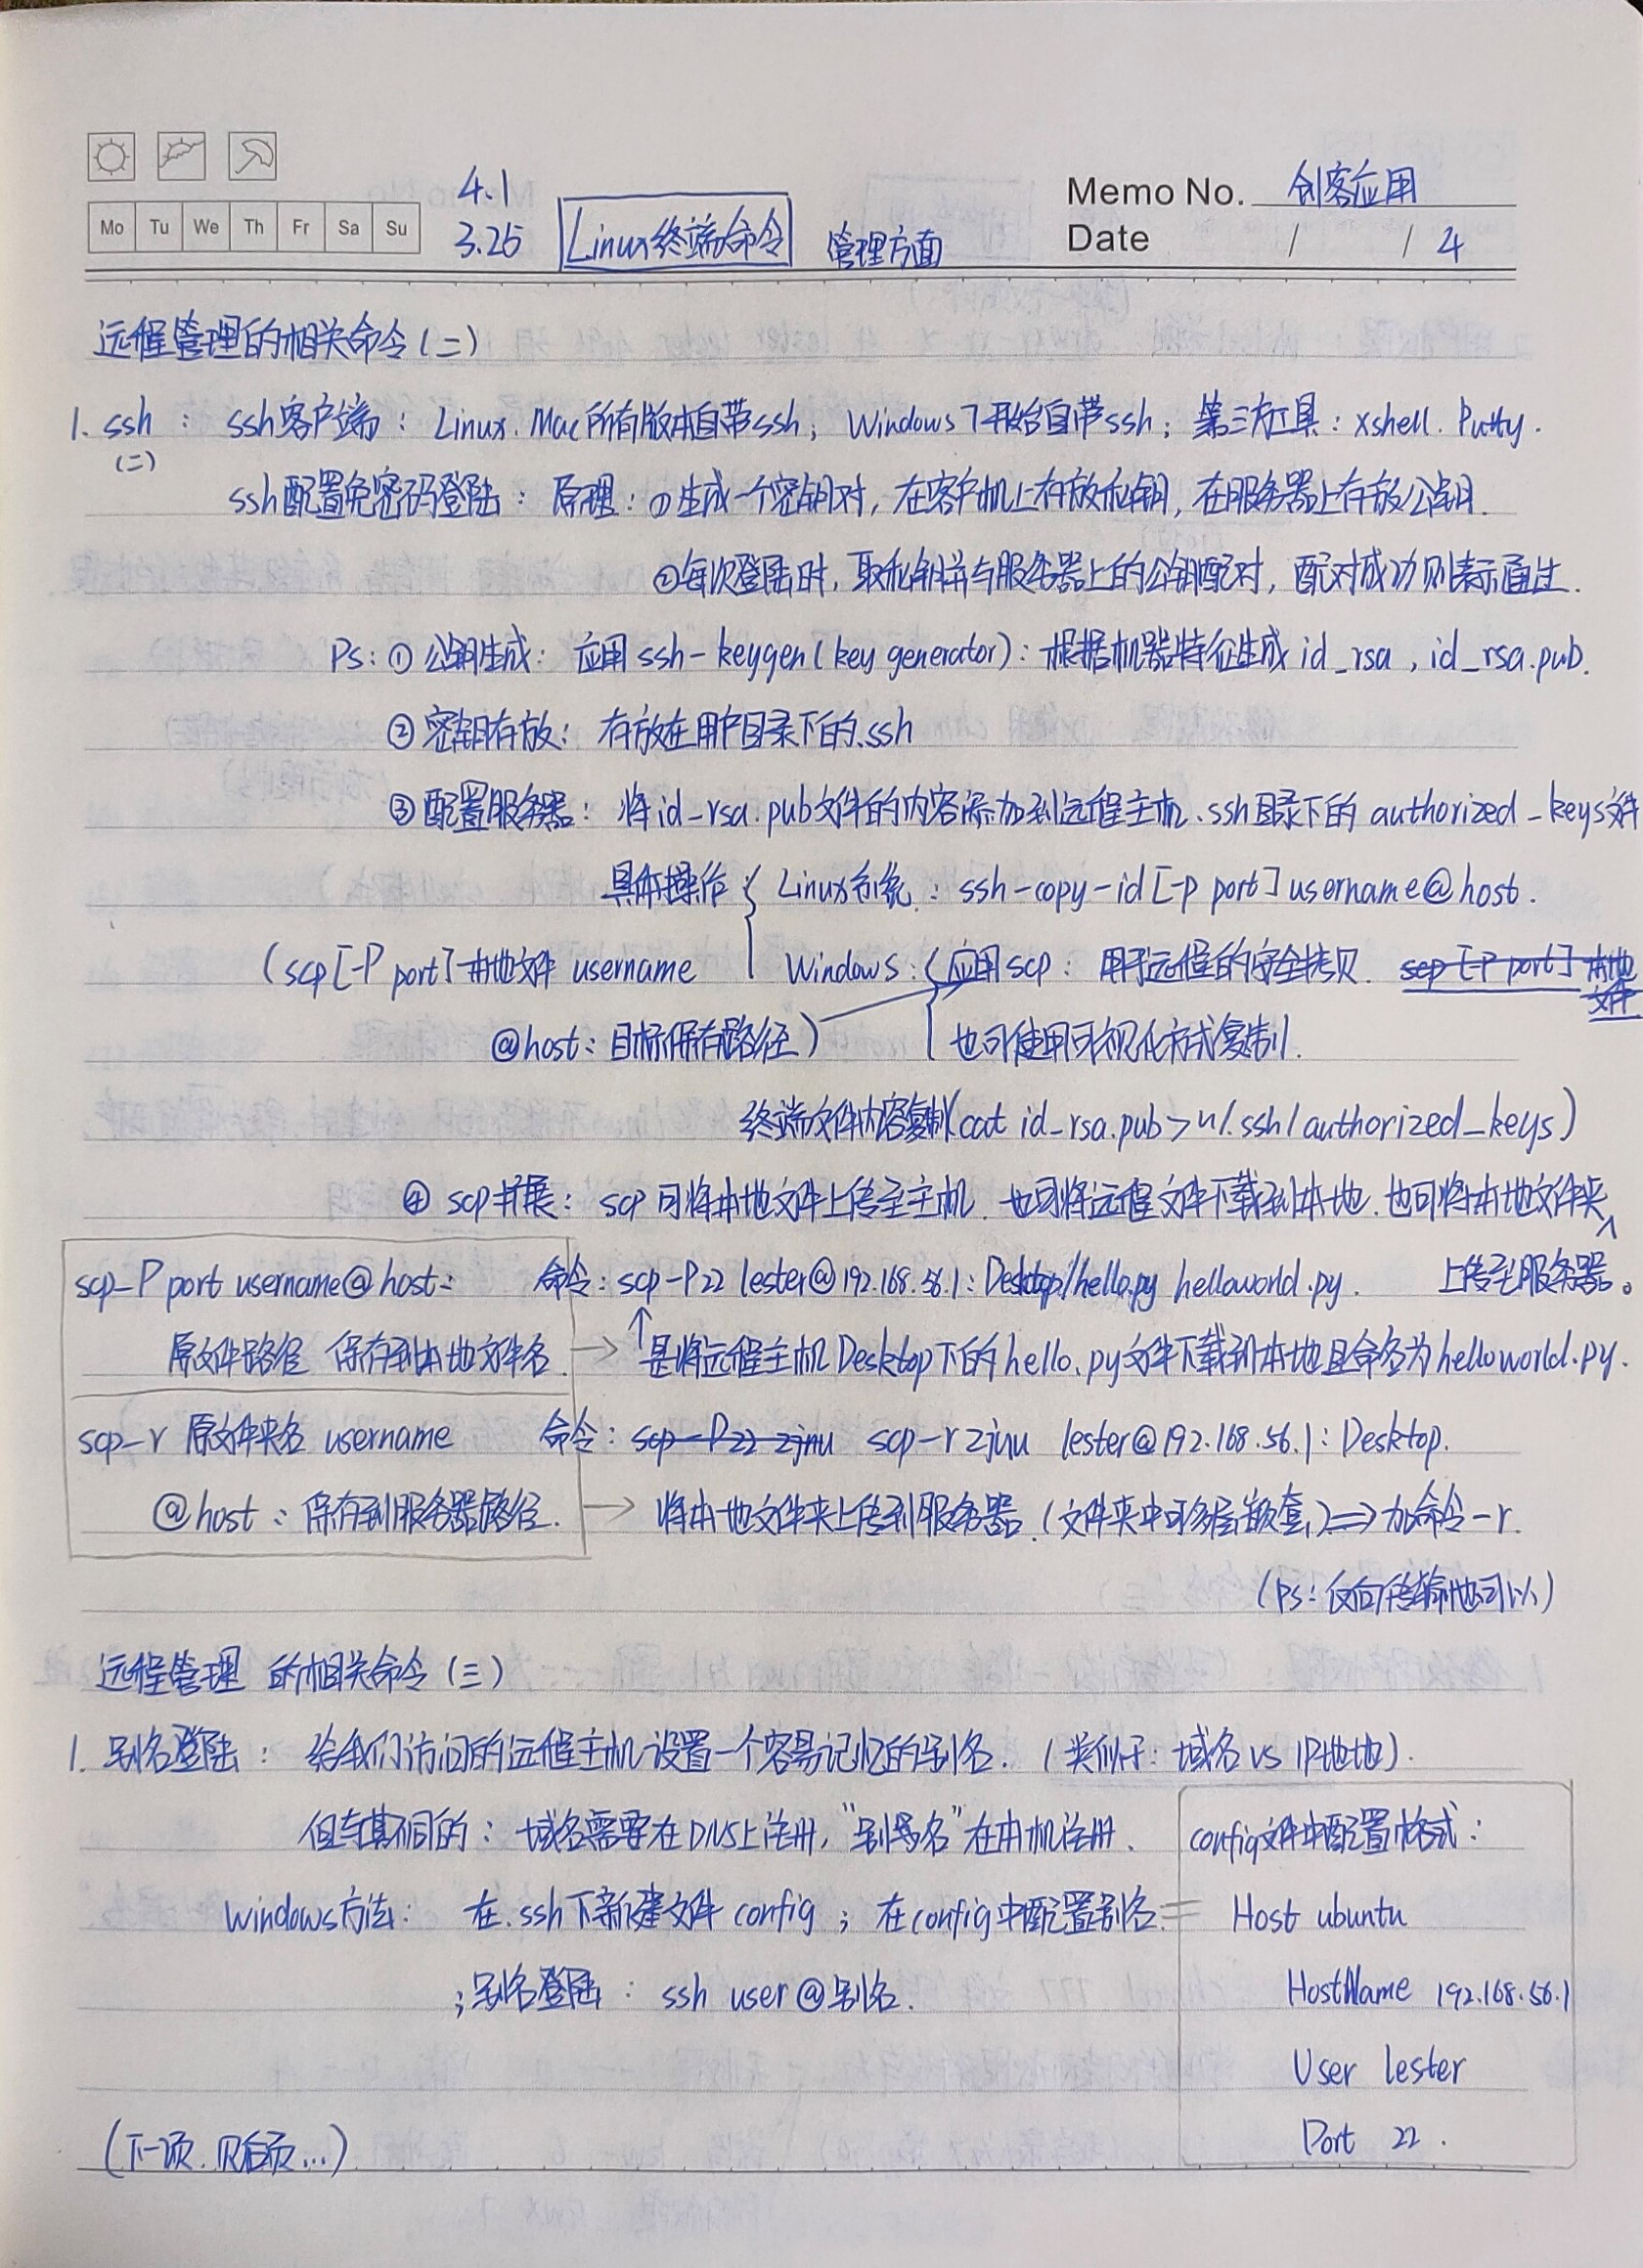 4.1
Memo No. 创客应用
Mo Tu We Th Fr Sa Su
3.25 Linux终端命令 管理方面
Date / / 4
远程管理的相关命令(二)
1. ssh : ssh客户端: Linux. Mac所有版本自带ssh; Windows 7开始自带ssh; 第三方工具: Xshell. Putty.
(二)
ssh配置免密码登陆: 原理: ①生成一个密钥对, 在客户机上存放私钥, 在服务器上存放公钥.
②每次登陆时, 取私钥并与服务器上的公钥配对, 配对成功则表示通过.
Ps: ① 公钥生成: 应用 ssh-keygen(key generator): 根据机器特征生成 id_rsa , id_rsa.pub.
② 密钥存放: 存放在用户目录下的.ssh
③ 配置服务器: 将id_rsa.pub文件的内容添加到远程主机.ssh目录下的 authorized_keys文件
具体操作 { Linux系统: ssh-copy-id [-p port] username@host.
(scp [-P port] 本地文件 username Windows: { 应用scp: 用于远程的安全拷贝. scp [-P port] 本地文件
@host: 目标保存路径) 也可使用可视化方式复制.
终端文件内容复制(cat id_rsa.pub > ~/.ssh/authorized_keys)
④ scp扩展: scp 可将本地文件上传至主机. 也可将远程文件下载到本地. 也可将本地文件夹
scp -P port username@host: 命令: scp -P 22 lester@192.168.56.1: Desktop/hello.py helloworld.py. 上传到服务器。
原文件路径 保存到本地文件名. → ↑是将远程主机 Desktop下的 hello.py文件下载到本地且命名为helloworld.py.
scp -r 原文件夹名 username 命令: scp -P 22 zjnu scp -r zjnu lester@192.168.56.1: Desktop.
@host: 保存到服务器路径. → 将本地文件夹上传到服务器. (文件夹中可多层嵌套) ⇒ 加命令 -r.
(Ps: 反向传输也可以)
远程管理 的相关命令(三)
1. 别名登陆: 给我们访问的远程主机设置一个容易记忆的别名. (类似于: 域名 vs IP地址).
但与其不同的: 域名需要在DNS上注册, "别名"在本机注册. config文件中配置格式:
Windows方法: 在.ssh下新建文件 config ; 在config中配置别名. = Host ubuntu
; 别名登陆: ssh user@别名. HostName 192.168.56.1
User lester
Port 22 .
(下一项. 见后页...)